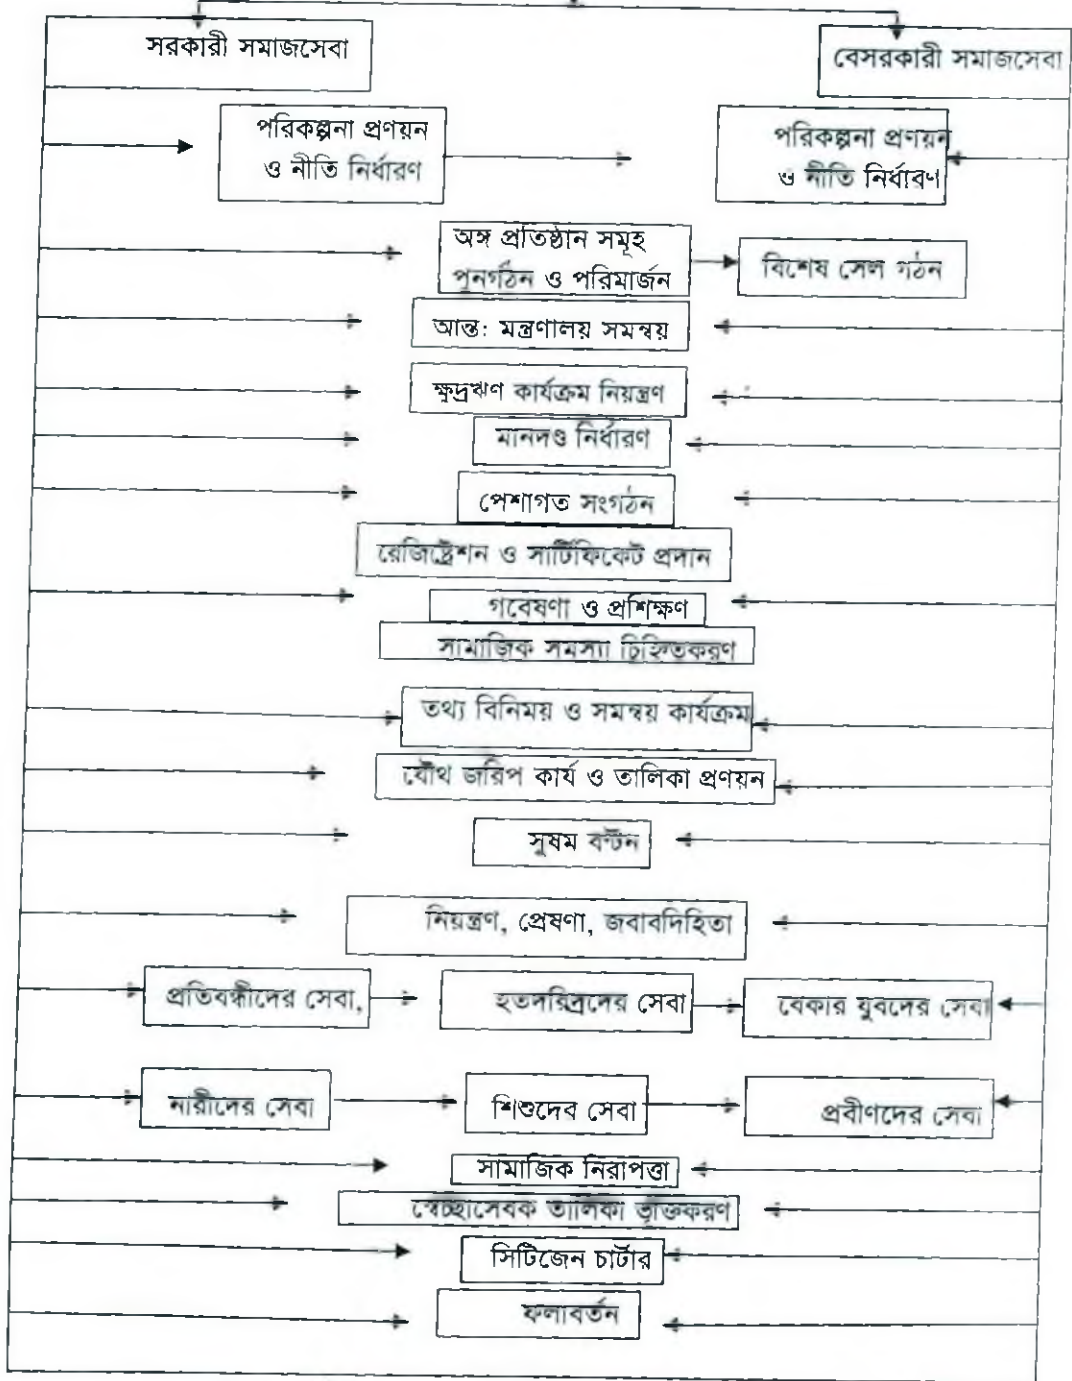 সরকারী সমাজসেবা
বেসরকারী সমাজসেবা
পরিকল্পনা প্রণয়ন
ও নীতি নির্ধারণ
পরিকল্পনা প্রণয়ন
ও নীতি নির্ধারণ
অঙ্গ প্রতিষ্ঠান সমূহ
পুনর্গঠন ও পরিমার্জন
বিশেষ সেল গঠন
আন্ত: মন্ত্রণালয় সমন্বয়
ক্ষুদ্রঋণ কার্যক্রম নিয়ন্ত্রণ
মানদণ্ড নির্ধারণ
পেশাগত সংগঠন
রেজিষ্ট্রেশন ও সার্টিফিকেট প্রদান
গবেষণা ও প্রশিক্ষণ
সামাজিক সমস্যা চিহ্নিতকরণ
তথ্য বিনিময় ও সমন্বয় কার্যক্রম
যৌথ জরিপ কার্য ও তালিকা প্রণয়ন
সুষম বন্টন
নিয়ন্ত্রণ, প্রেষণা, জবাবদিহিতা
প্রতিবন্ধীদের সেবা,
হতদরিদ্রদের সেবা
বেকার যুবদের সেবা
নারীদের সেবা
শিশুদের সেবা
প্রবীণদের সেবা
সামাজিক নিরাপত্তা
স্বেচ্ছাসেবক তালিকা ভূক্তিকরণ
সিটিজেন চার্টার
ফলাবর্তন